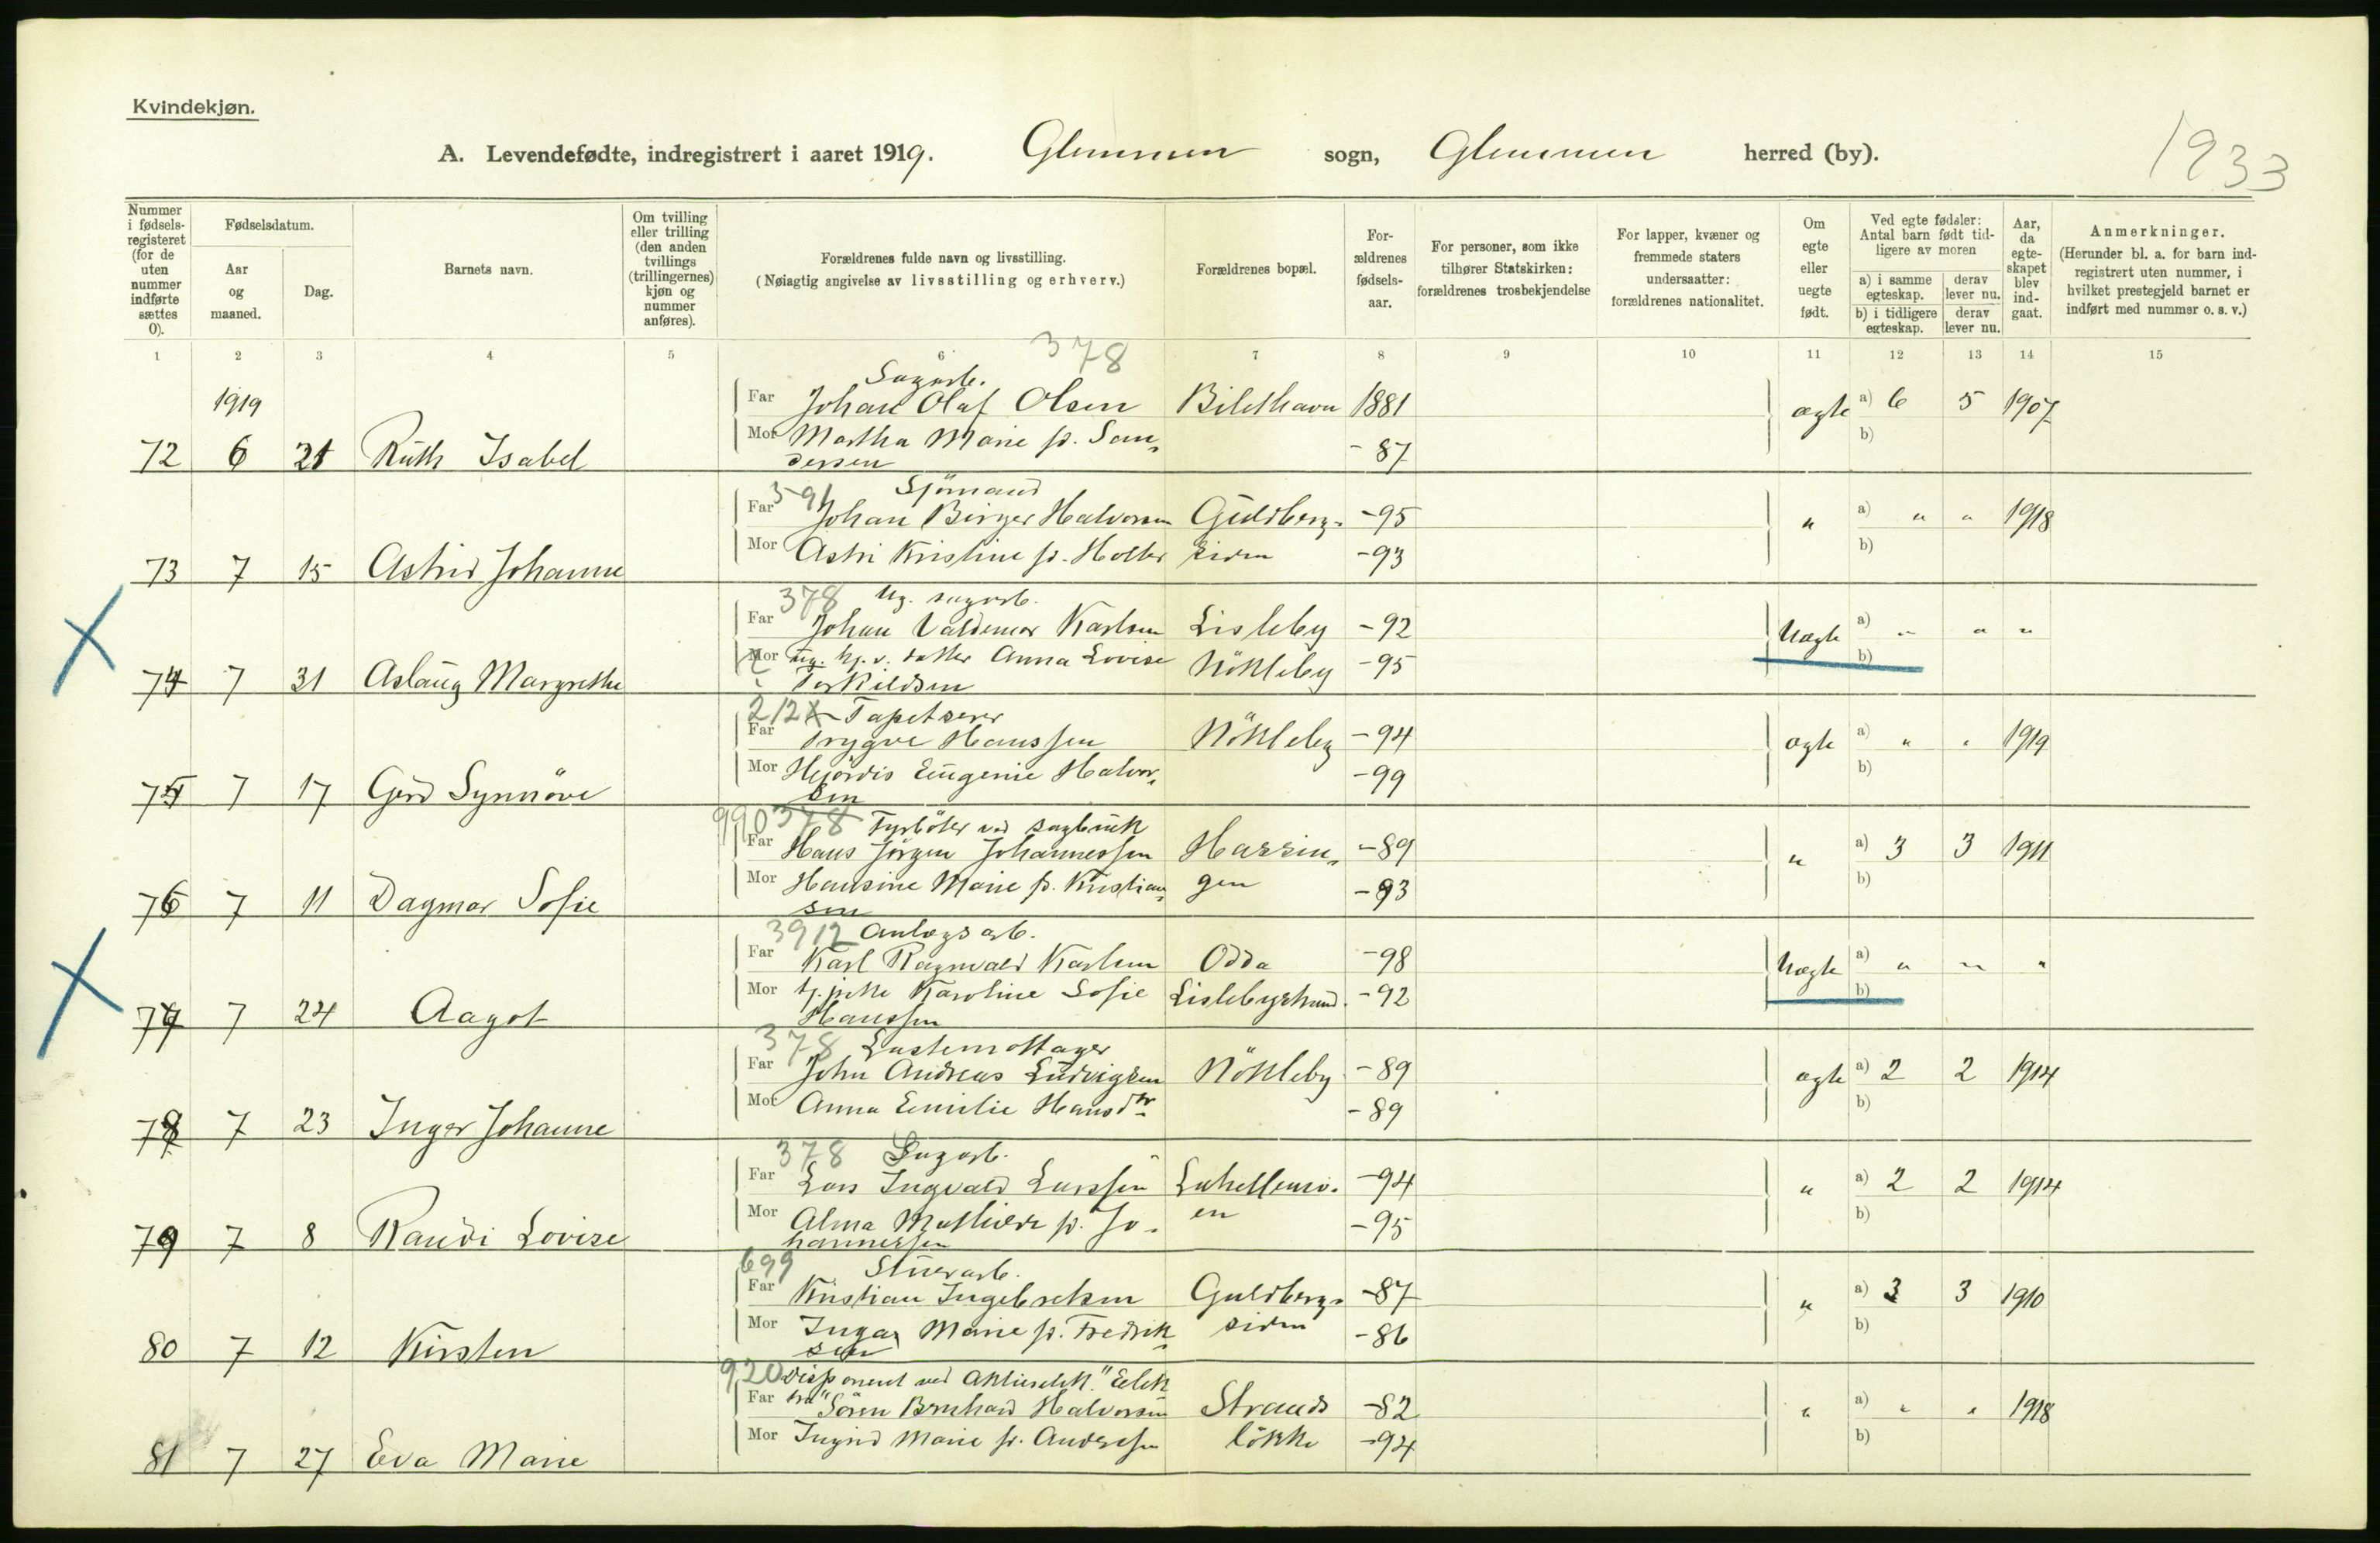 Kvindekjøn.
A. Levendefødte, indregistrert i aaret 1919. Glemmen sogn, Glemmen herred (by). 1933
Nummer i fødselsregisteret (for de uten nummer indførte sættes 0).
Fødselsdatum.
Aar og maaned.
Dag.
Barnets navn.
Om tvilling eller trilling (den anden tvillings (trillingernes) kjøn og nummer anføres).
Forældrenes fulde navn og livsstilling.
(Nøiagtig angivelse av livsstilling og erhverv.)
Forældrenes bopæl.
Forældrenes fødselsaar.
For personer, som ikke tilhører Statskirken: forældrenes trosbekjendelse
For lapper, kvæner og fremmede staters undersaatter: forældrenes nationalitet.
Om egte eller uegte født.
Ved egte fødsler: Antal barn født tidligere av moren
a) i samme egteskap. derav lever nu.
b) i tidligere egteskap. derav lever nu.
Aar, da egteskapet blev indgaat.
Anmerkninger.
(Herunder bl. a. for barn indregistrert uten nummer, i hvilket prestegjeld barnet er indført med nummer o. s. v.)
1 2 3 4 5 6 7 8 9 10 11 12 13 14 15
378
Sagarb.
1919
Far Johan Olaf Olsen Bilethavn 1881 ægte a) 6 5 1907
Mor Martha Marie f. San- - 87 b)
72 6 21 Ruth Isabel
dersen
591 Sjömand
Far Johan Birger Halvorsen Guldberg- -95 " a) " " 1918
Mor Astri Kristine f. Holter siden -93 b)
73 7 15 Astrid Johanne
378 Ug. sagarb.
Far Johan Valdemar Karlsen Lisleby -92 Uægte a) " " "
Mor ug. hj.v. datter Anna Lovise Nökleby -95 b)
74 7 31 Aslaug Margrethe
Torkildsen
212 Tapetserer
Far Trygve Hanssen Nökleby -94 ægte a) " " 1919
Mor Hjördis Eugenie Halvor- -99 b)
75 7 17 Gerd Synnöve
sen
990 378 Fyrböter ved sagbruk
Far Hans Jörgen Johannessen Hassin- -89 " a) 3 3 1911
Mor Hansine Marie f. Kristian- gen -93 b)
76 7 11 Dagmar Sofie
sen
3912 Anlægsarb.
Far Karl Ragnvald Karlsen Odda -98 Uægte a) " " "
Mor tj.pike Karoline Sofie Lislebystrand. -92 b)
77 7 24 Aagot
Hanssen
378 Lastemottager
Far John Andreas Ludvigsen Nökleby -89 ægte a) 2 2 1914
Mor Anna Emilie Hansdtr -89 b)
78 7 23 Inger Johanne
378 Sagarb.
Far Lars Ingvald Larssen -94 " a) 2 2 1914
Mor Alma Mathilde f. Jo- en -95 b)
79 7 8 Randi Lovise
hannessen
699 Stuerarb.
Far Kristian Ingebretsen Guldberg- -87 " a) 3 3 1910
Mor Inga Marie f. Fredrik- siden -86 b)
80 7 12 Kirsten
sen
920 Disponent ved Aktieselsk. "Elek
Far tra" Sören Bernhard Halvorsen Strands -82 " a) " " 1918
Mor Ingrid Marie f. Andresen lökke -94 b)
81 7 27 Eva Marie